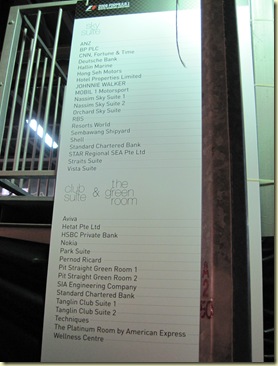 sky
suite
ANZ
BP PLC
CNN, Fortune & Time
Deutsche Bank
Hallin Marine
Hong Seh Motors
Hotel Properties Limited
JOHNNIE WALKER
MOBIL 1 Motorsport
Nassim Sky Suite 1
Nassim Sky Suite 2
Orchard Sky Suite
RBS
Resorts World
Sembawang Shipyard
Shell
Standard Chartered Bank
STAR Regional SEA Pte Ltd
Straits Suite
Vista Suite
club suite & the green room
Aviva
Hetat Pte Ltd
HSBC Private Bank
Nokia
Park Suite
Pernod Ricard
Pit Straight Green Room 1
Pit Straight Green Room 2
SIA Engineering Company
Standard Chartered Bank
Tanglin Club Suite 1
Tanglin Club Suite 2
Techniques
The Platinum Room by American Express
Wellness Centre